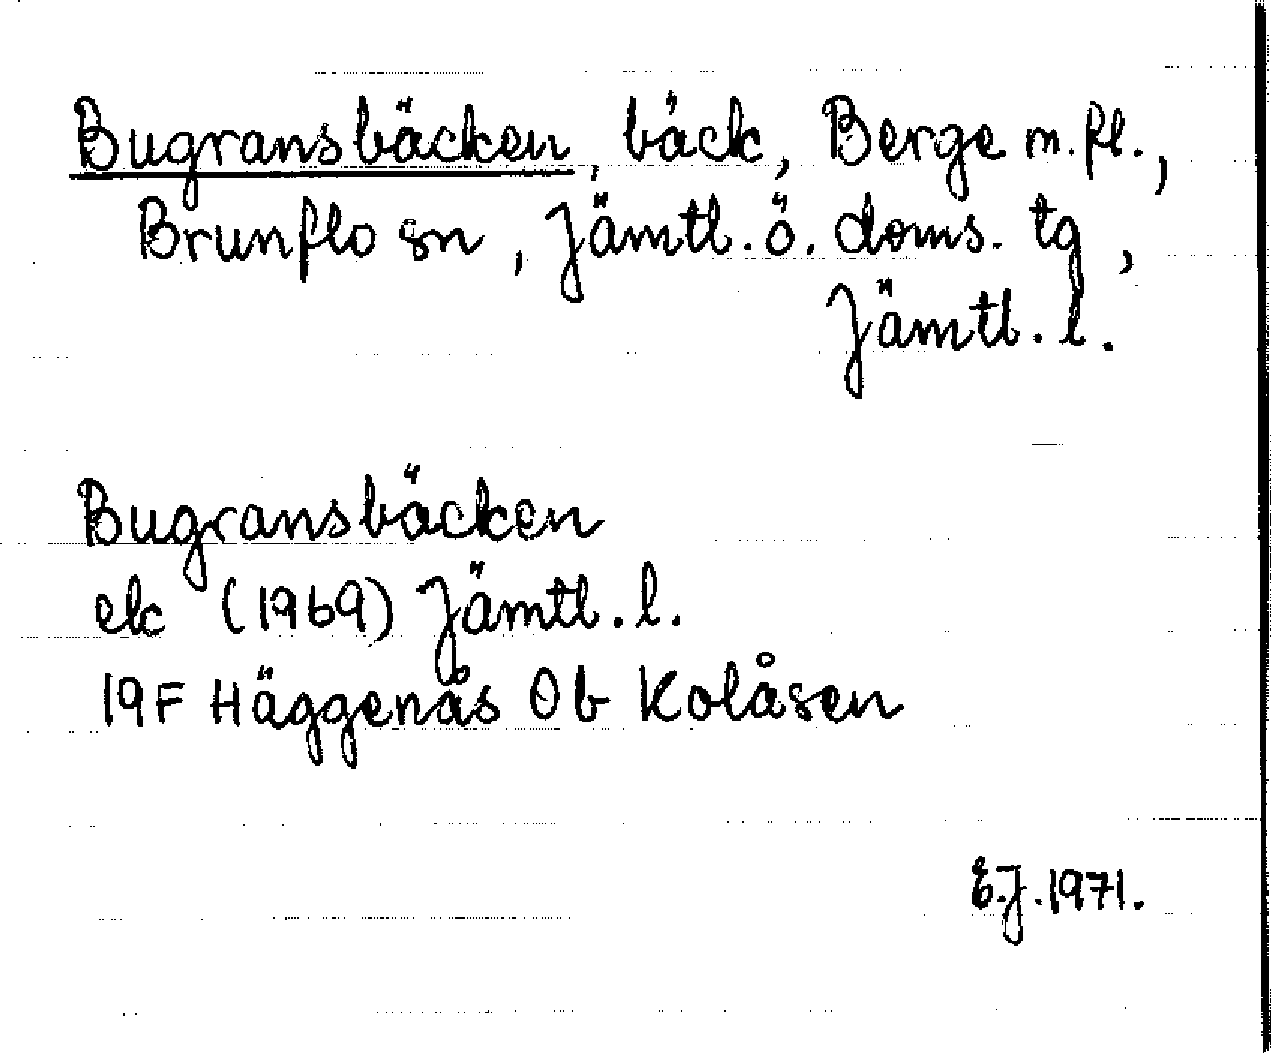 Bugransbäcken, bäck, Berge m.fl.,
Brunflo sn, Jämtl. ö. doms. tg,
Jämtl. l.
Bugransbäcken
ek (1969) Jämtl. l.
19F Häggenås Ob Kolåsen
E.J. 1971.